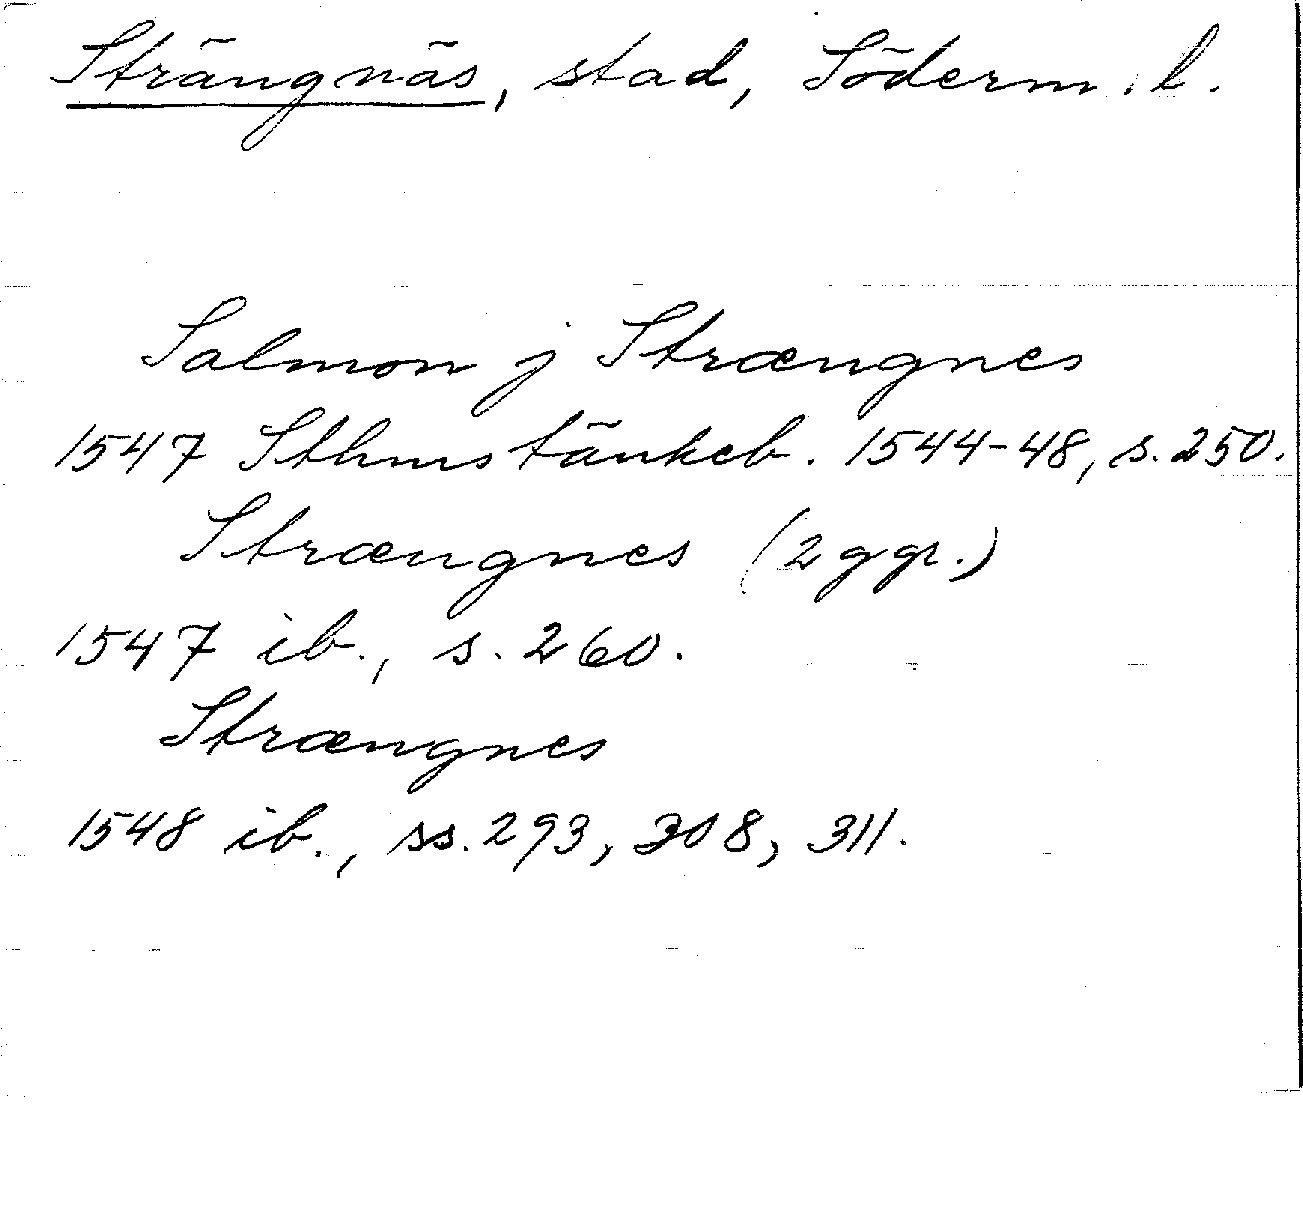 Strängnäs, stad, Söderm. l.
Salmon j Strængnes
1547 Sthms tänkeb. 1544-48, s. 250.
Strængnes (2 ggr.)
1547 ib., s. 260.
Strængnes
1548 ib., ss. 293, 308, 311.